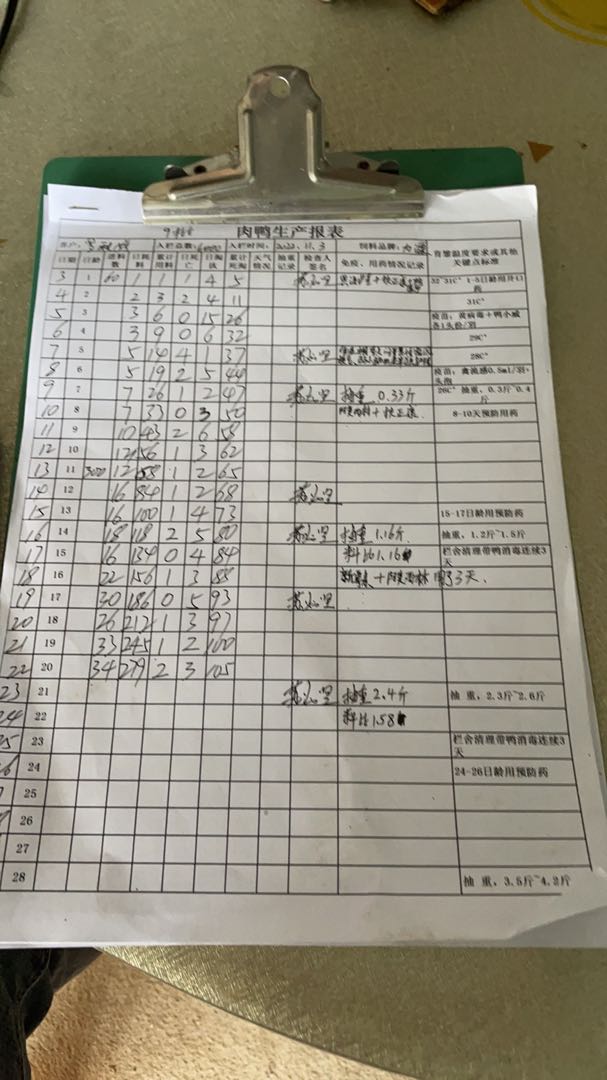 肉鸭生产报表
客户： 入栏总数： 入栏时间：2022、11、3 饲料品牌：
日期 日龄 进料数 日耗料 累计用料 日死亡 日淘汰 累计死淘 天气情况 抽重记录 检查人签名 免疫、用药情况记录 育雏温度要求或其他关键点标准
3 1 60 1 1 1 4 5 32~31C° 1-5日龄用开口药
4 2 2 3 2 4 11 31C°
5 3 3 6 0 15 26 疫苗：黄病毒+鸭小威各1头份/羽
6 4 3 9 0 6 32 29C°
7 5 5 14 4 1 37 28C°
8 6 5 19 2 5 44 疫苗：禽流感0.5ml/羽·头孢
9 7 7 26 1 2 47 抽重 0.33斤 26C° 抽重，0.3斤~0.4斤
10 8 7 33 0 3 50 8-10天预防用药
11 9 10 43 2 6 58
12 10 12 56 1 3 62
13 11 300 12 1 2 65
14 12 16 84 1 2 68
15 13 16 100 1 4 73 15-17日龄用预防药
16 14 18 118 2 5 80 抽重 1.16斤 抽重，1.2斤~1.5斤
17 15 16 134 0 4 84 料比1.16 栏舍清理带鸭消毒连续3天
18 16 22 156 1 3 88 用了3天.
19 17 30 186 0 5 93
20 18 26 212 1 3 97
21 19 33 245 1 2 100
22 20 34 279 2 3 105
23 21 抽重 2.4斤 抽 重，2.3斤~2.6斤
24 22 料比1.58
25 23 栏舍清理带鸭消毒连续3天
24 24-26日龄用预防药
25
26
27
28 抽 重，3.5斤~4.2斤